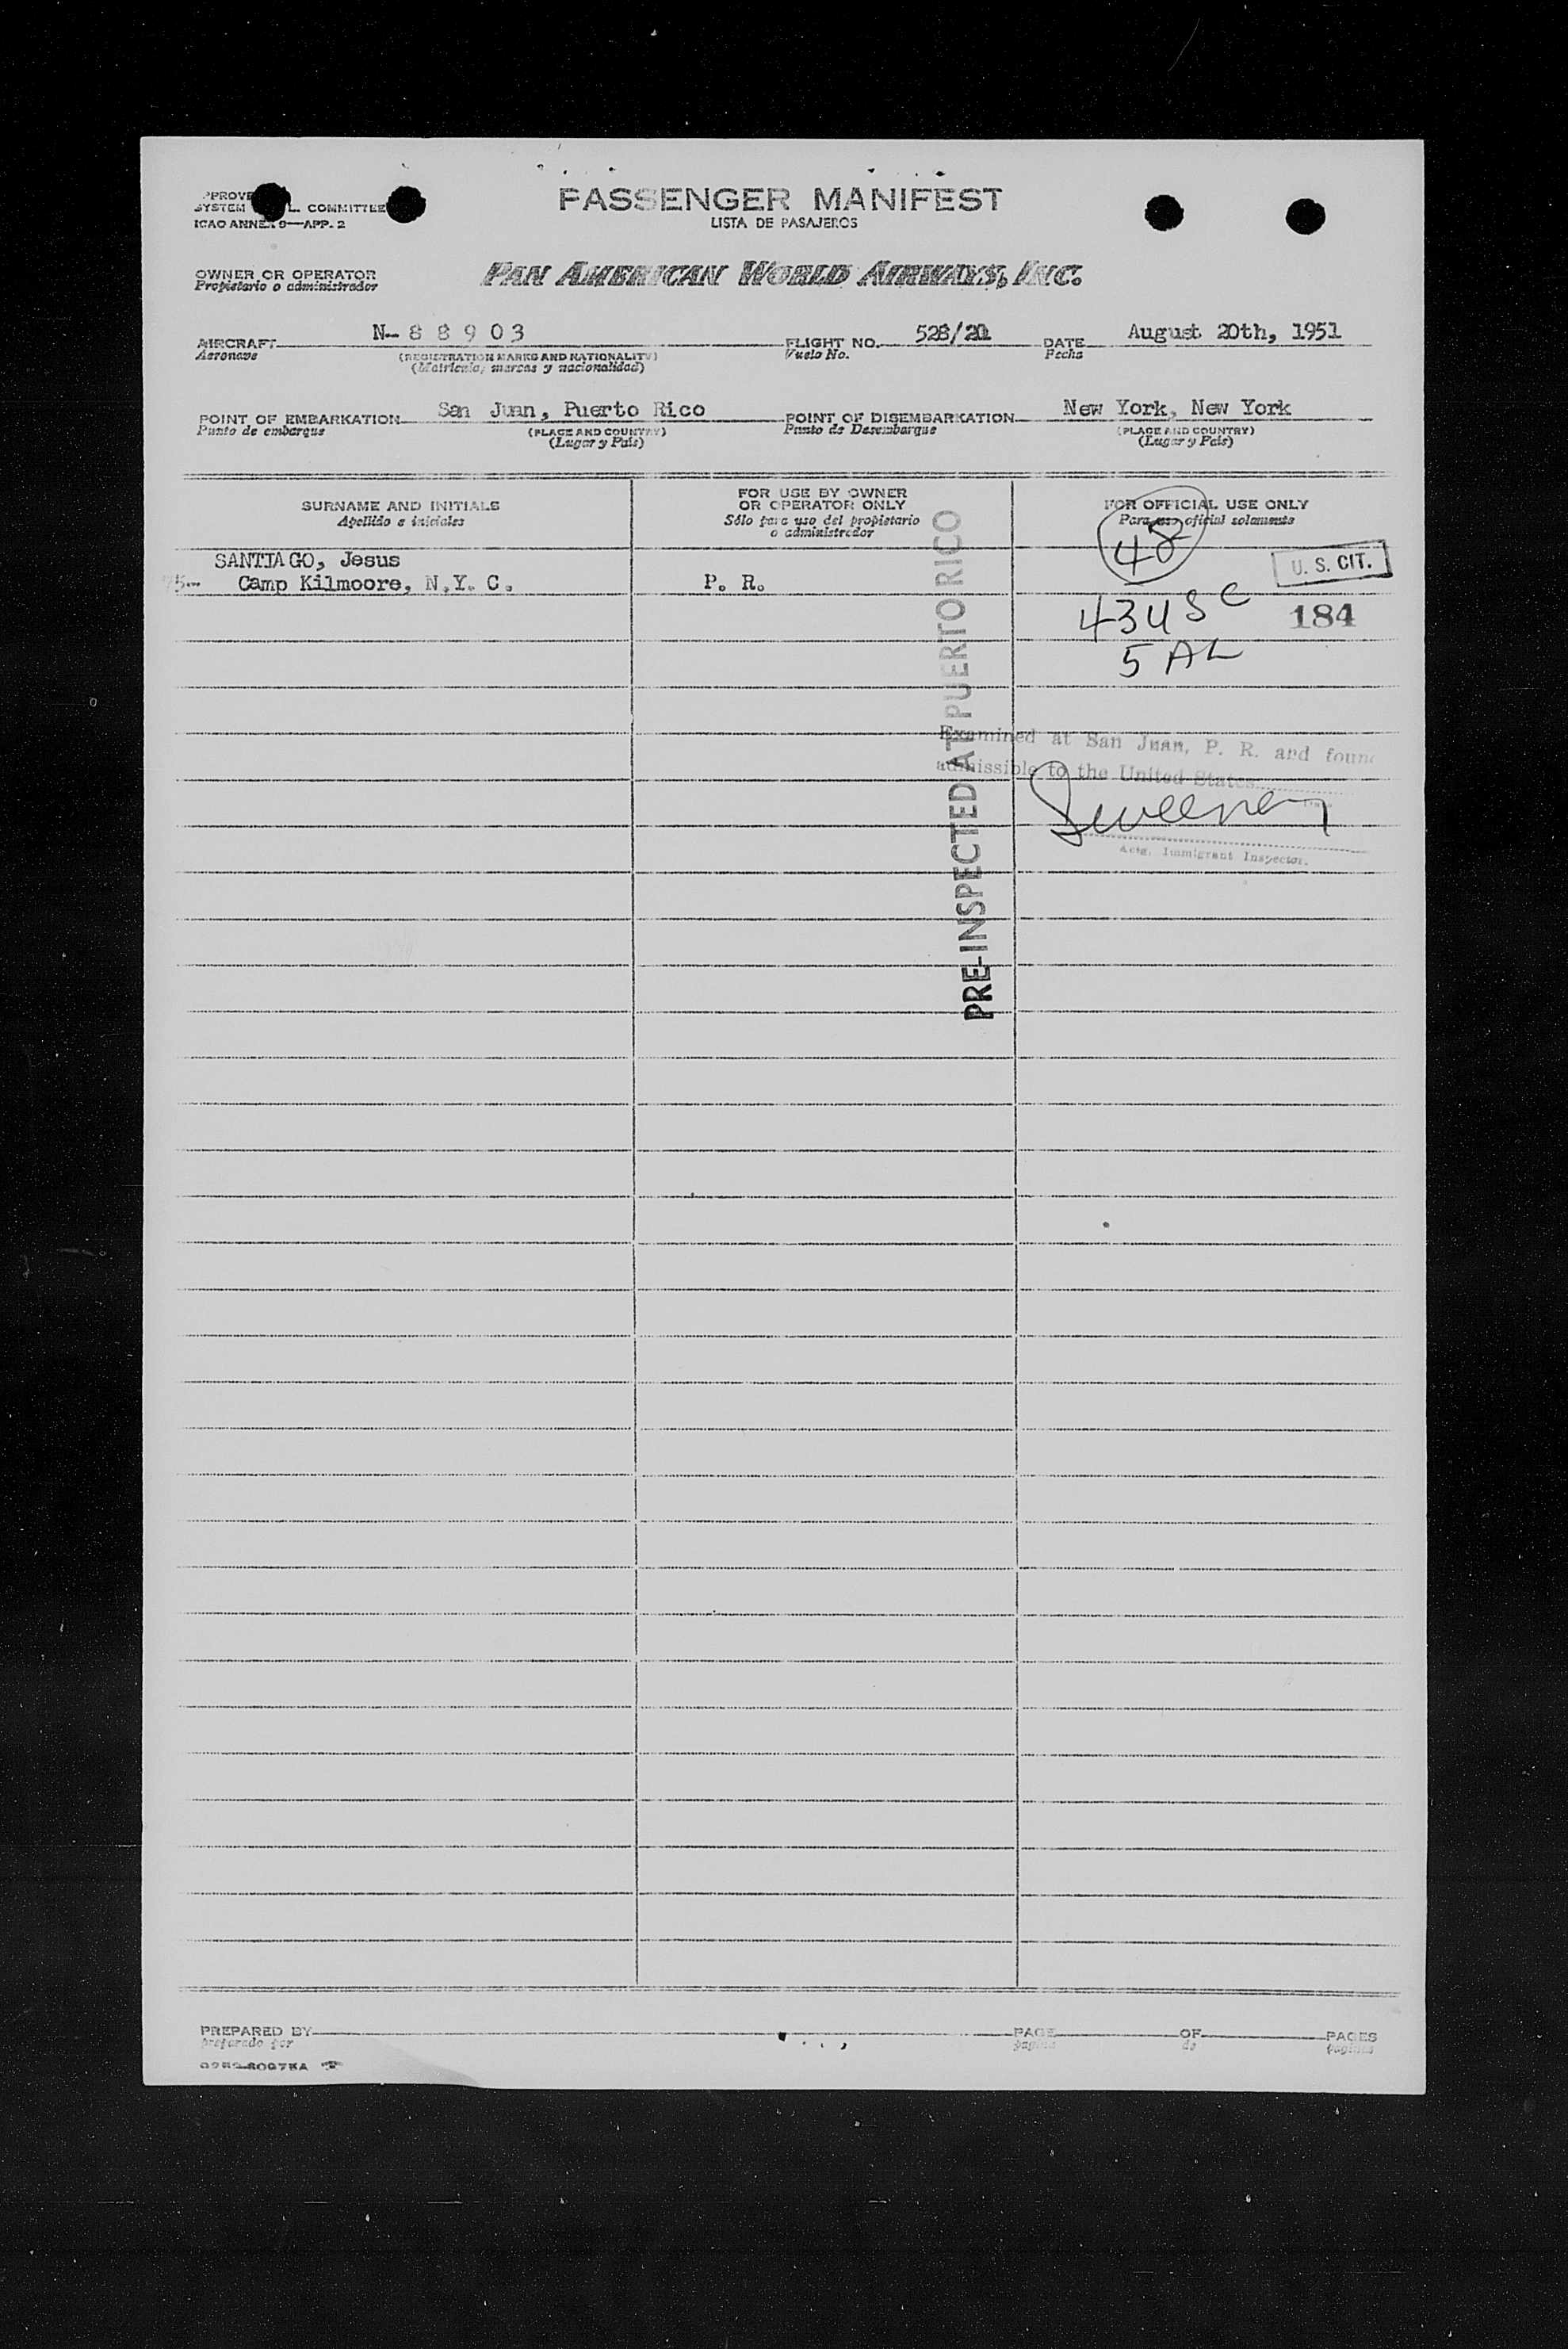 PASSENGER MANIFEST
LISTA DE PASAJEROS
SYSTEM COMMITTEE
ICAO ANNEX 9—APP. 2
OWNER OR OPERATOR
Propietario o administrador
PAN AMERICAN WORLD AIRWAYS, INC.
AIRCRAFT N-88903 FLIGHT NO. 528/20 DATE August 20th, 1951
Aeronave (REGISTRATION MARKS AND NATIONALITY) Vuelo No. Fecha
(Matrícula, marcas y nacionalidad)
POINT OF EMBARKATION San Juan, Puerto Rico POINT OF DISEMBARKATION New York, New York
Punto de embarque (PLACE AND COUNTRY) Punto de Desembarque (PLACE AND COUNTRY)
(Lugar y País) (Lugar y País)
SURNAME AND INITIALS FOR USE BY OWNER OR OPERATOR ONLY FOR OFFICIAL USE ONLY
Apellido e iniciales Sólo para uso del propietario o administrador Para uso oficial solamente
48
SANTIAGO, Jesus U. S. CIT.
75-- Camp Kilmoore, N.Y. C. P. R.
43 USC 184
5 AL
PRE-INSPECTED AT PUERTO RICO
Examined at San Juan, P. R. and found
admissible to the United States
Sweeney
Actg. Immigrant Inspector.
PREPARED BY PAGE OF PAGES
preparado por página de páginas